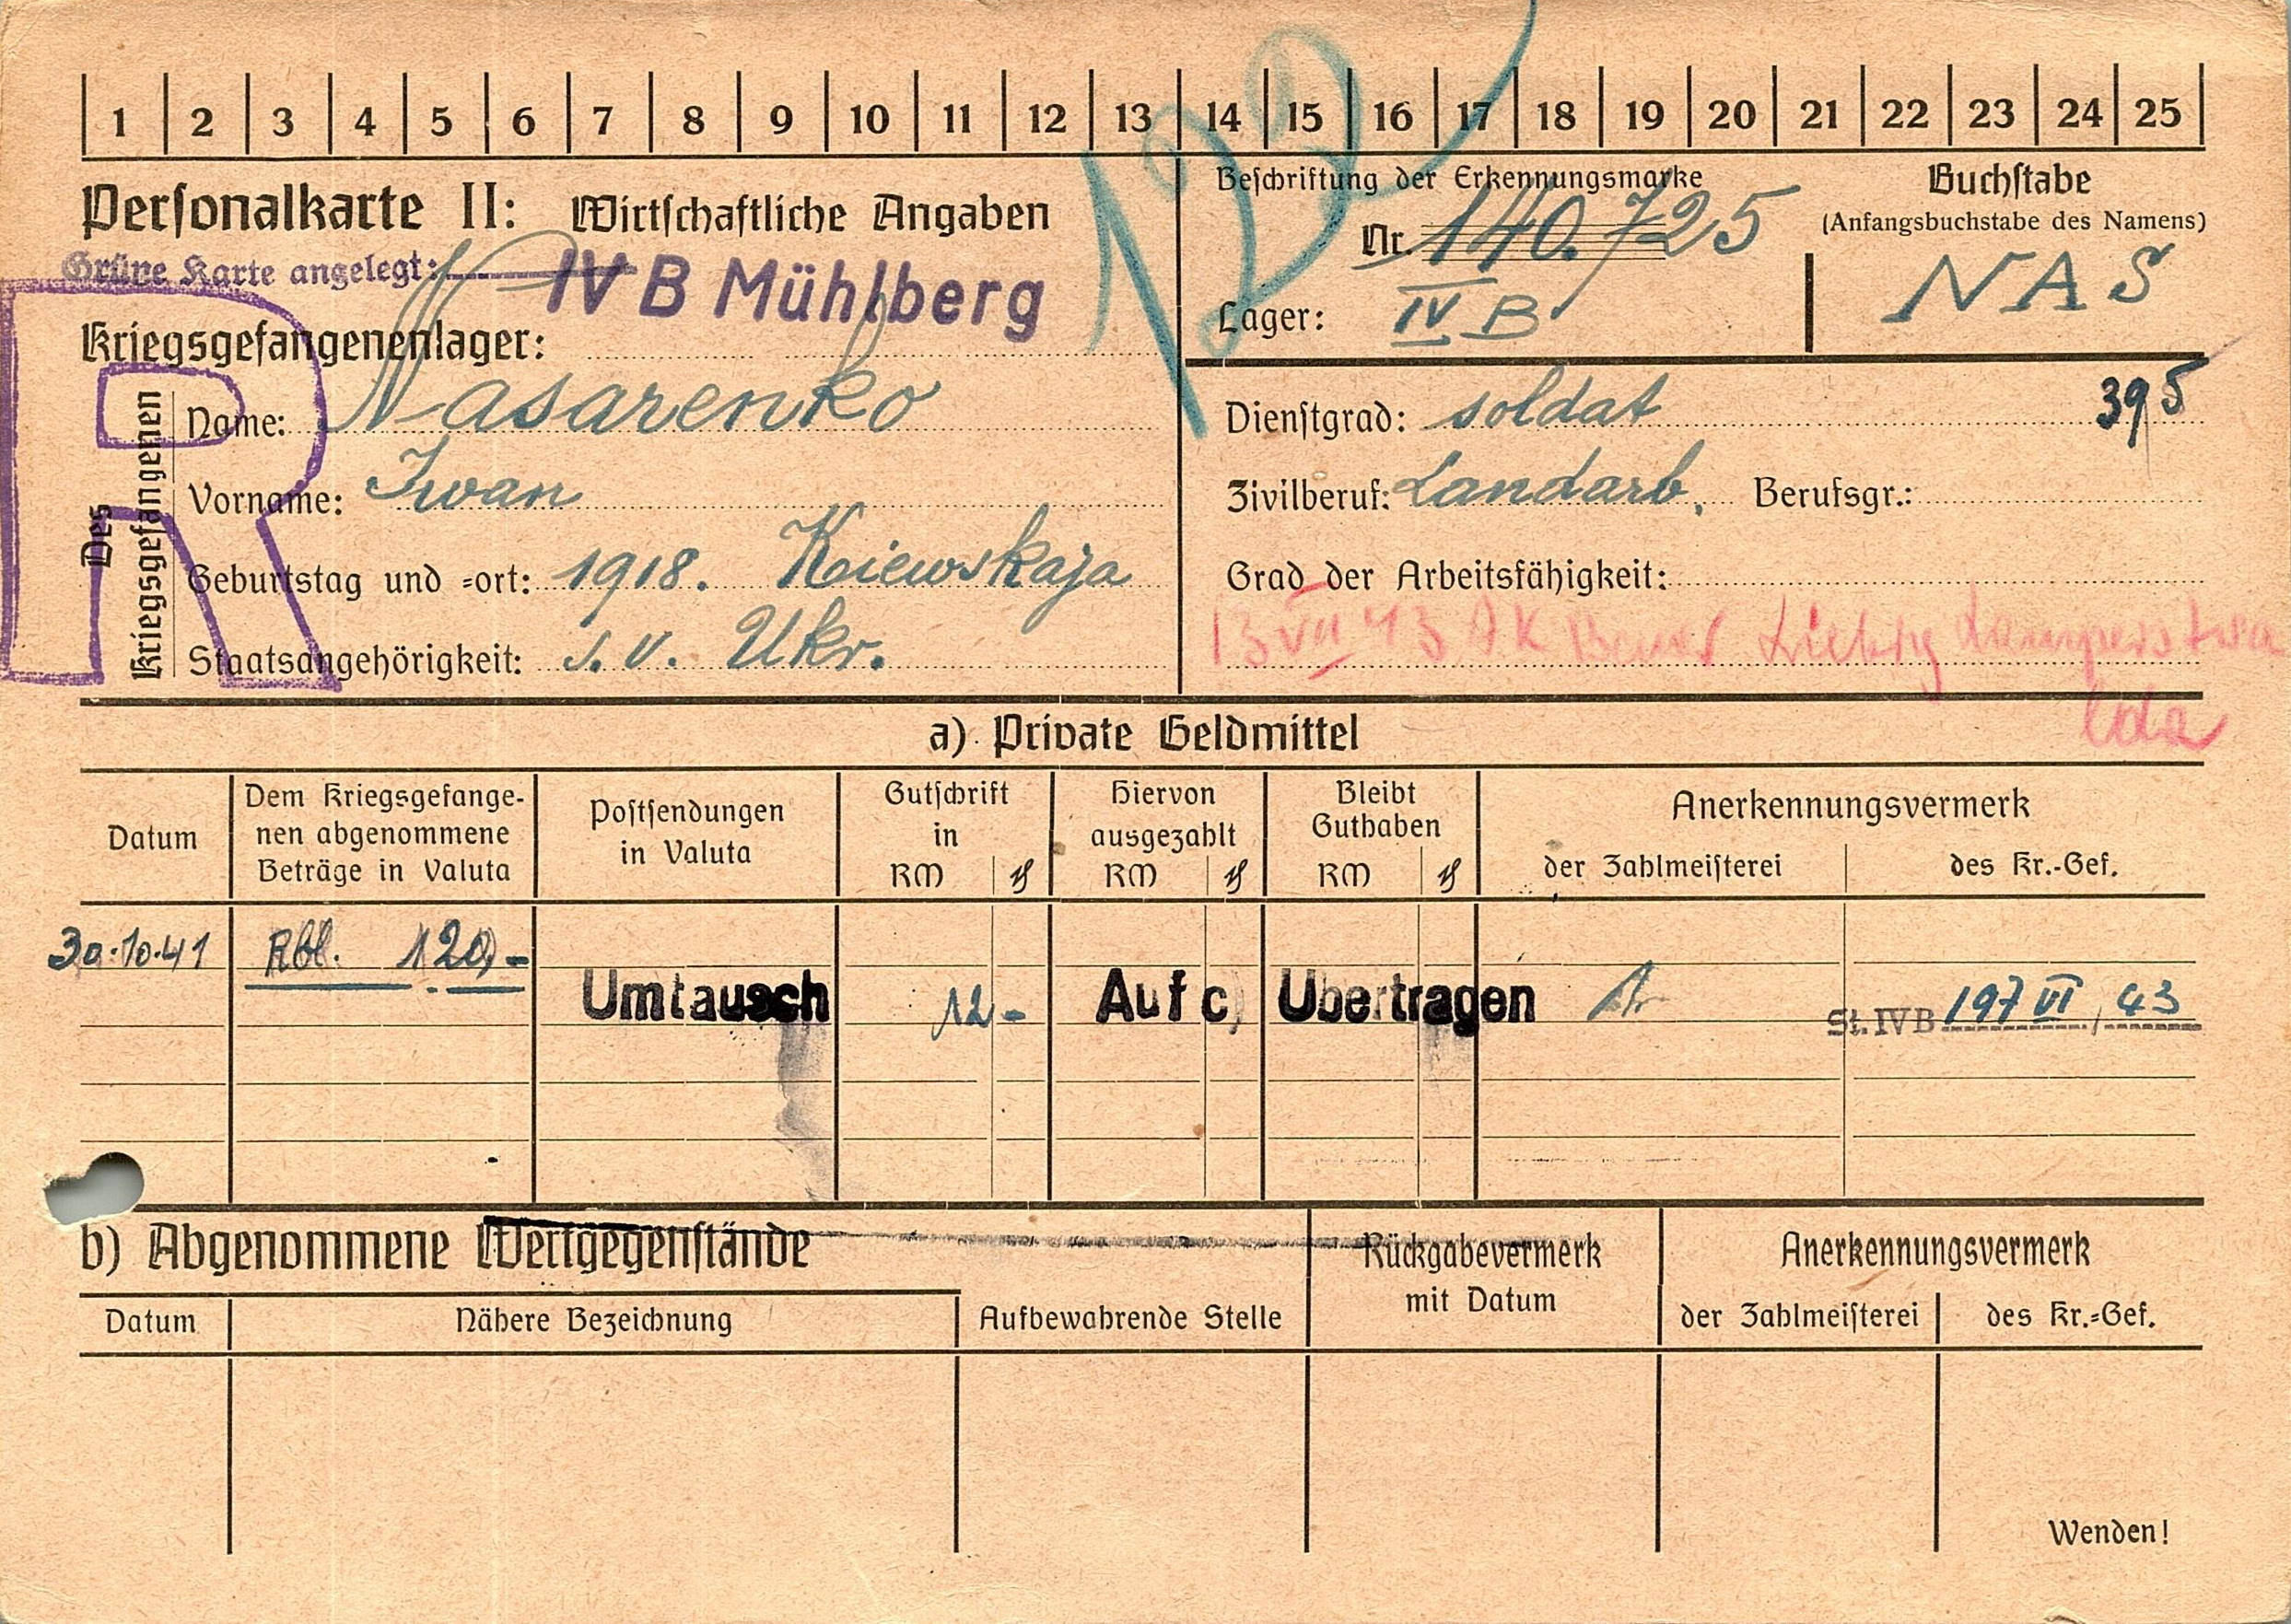 1 2 3 4 5 6 7 8 9 10 11 12 13 14 15 16 17 18 19 20 21 22 23 24 25
Personalkarte II: Wirtschaftliche Angaben
Grüne Karte angelegt:
IV B Mühlberg
Kriegsgefangenenlager:
Des Kriegsgefangenen
Name: Nasarenko
Vorname: Iwan
Geburtstag und =ort: 1918. Kiewskaja
Staatsangehörigkeit: s. v. Ukr.
R
Beschriftung der Erkennungsmarke
Nr. 140.725
Lager: IV B
Buchstabe
(Anfangsbuchstabe des Namens)
NAS
395
Dienstgrad: soldat
Zivilberuf: Landarb. Berufsgr.:
Grad der Arbeitsfähigkeit:
13 VII 43 AK
a) Private Geldmittel
Datum
Dem Kriegsgefange-
nen abgenommene
Beträge in Valuta
Postsendungen
in Valuta
Gutschrift
in
RM ₰
Hiervon
ausgezahlt
RM ₰
Bleibt
Guthaben
RM ₰
Anerkennungsvermerk
der Zahlmeisterei
des Kr.-Gef.
30.10.41 Rbl. 120,-
Umtausch 12- Auf c) Übertragen St. IV B 197 VI / 43
b) Abgenommene Wertgegenstände
Datum
Nähere Bezeichnung
Aufbewahrende Stelle
Rückgabevermerk
mit Datum
Anerkennungsvermerk
der Zahlmeisterei
des Kr.=Gef.
Wenden!